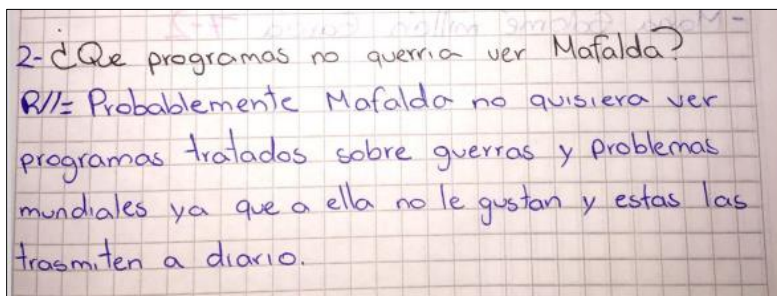 2-¿Qe programas no querria ver Mafalda?
R//= Probablemente Mafalda no quisiera ver
programas tratados sobre guerras y problemas
mundiales ya que a ella no le gustan y estas las
trasmiten a diario.